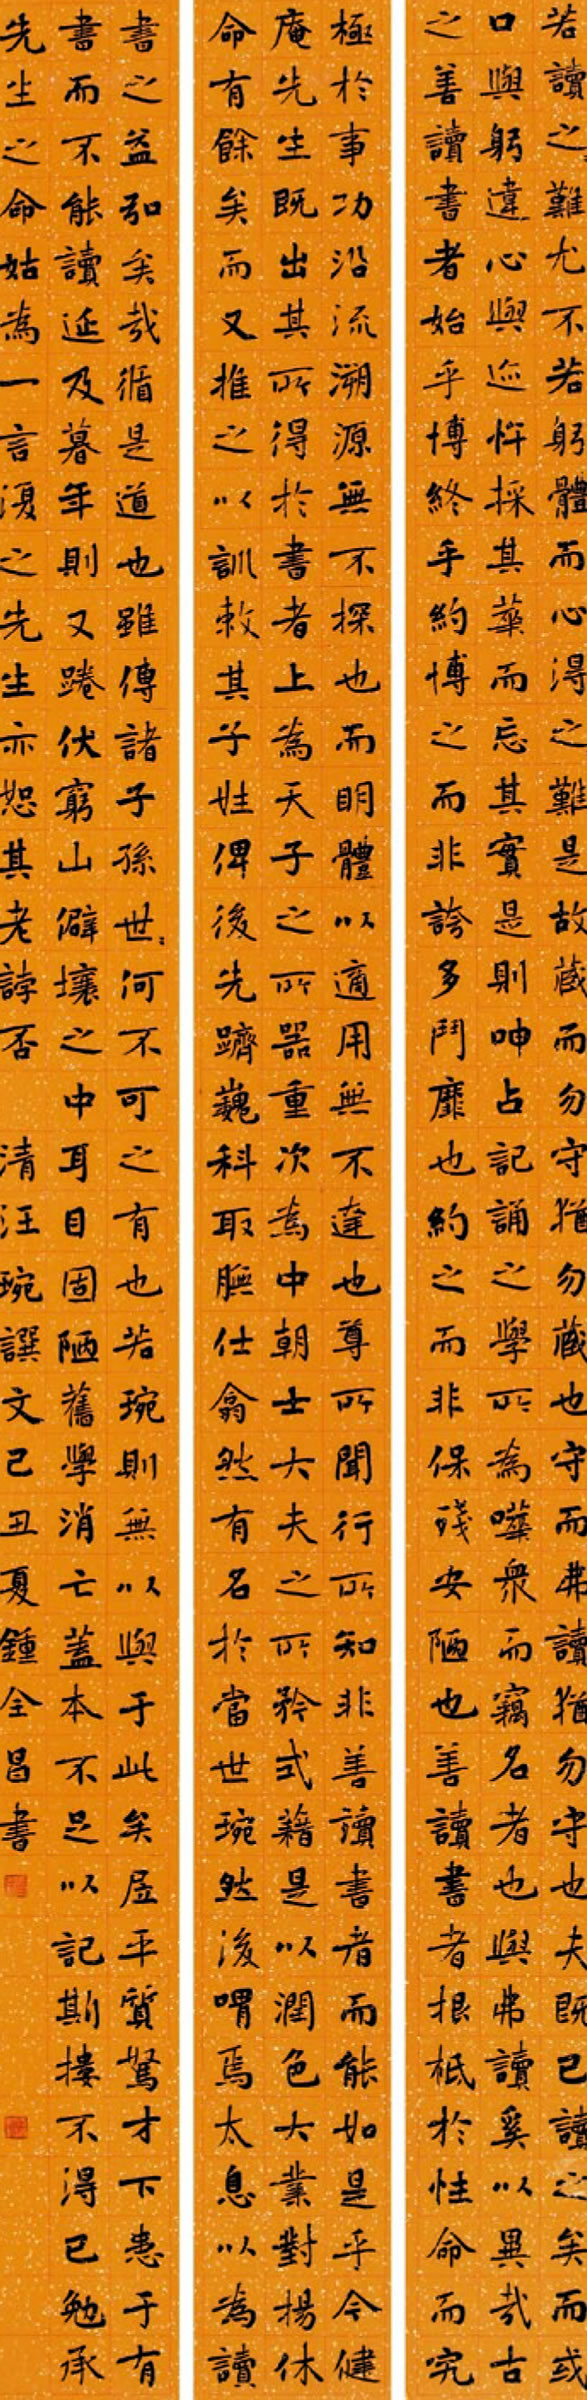 若讀之難尤不若躬體而心得之難是故藏而勿守猶勿藏也守而弗讀猶勿守也夫既已讀之矣而或
口與躬違心與迹忤採其華而忘其實是則呻占記誦之學所為嘩衆而竊名者也與弗讀奚以異哉古
之善讀書者始乎博終乎約博之而非誇多鬥靡也約之而非保殘安陋也善讀書者根柢於性命而究
極於事功沿流溯源無不探也而明體以適用無不達也尊所聞行所知非善讀書者而能如是乎今健
庵先生既出其所得於書者上為天子之所器重次為中朝士大夫之所矜式藉是以潤色大業對揚休
命有餘矣而又推之以訓敕其子姓俾後先躋巍科取膴仕翕然有名於當世琬然後喟焉太息以為讀
書之益弘矣哉循是道也雖傳諸子孫世〻何不可之有也若琬則無以與于此矣居平質駑才下患于有
書而不能讀延及暮年則又踡伏窮山僻壤之中耳目固陋舊學消亡蓋本不足以記斯樓不得已勉承
先生之命姑為一言復之先生亦恕其老誖否 清汪琬譔文己丑夏鍾全昌書